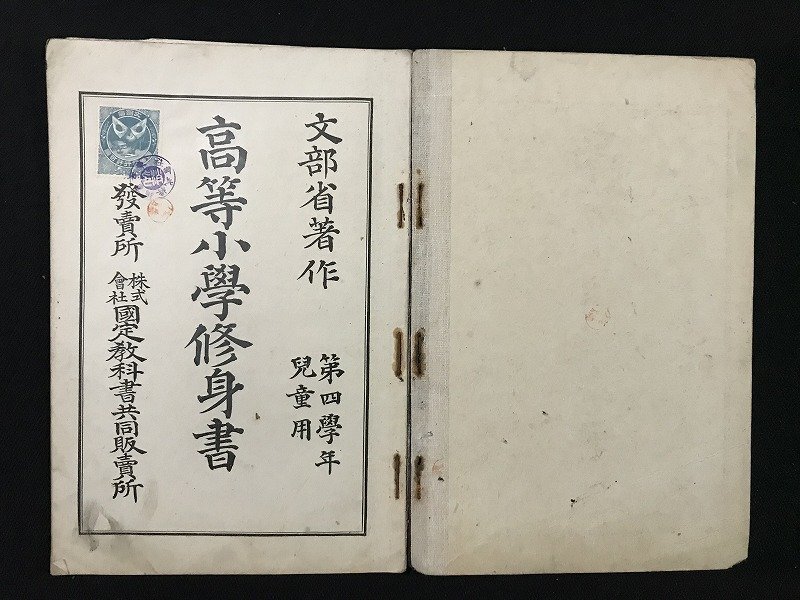 文部省著作
第四學年
兒童用
高等小學修身書
發賣所 株式會社 國定敎科書共同販賣所